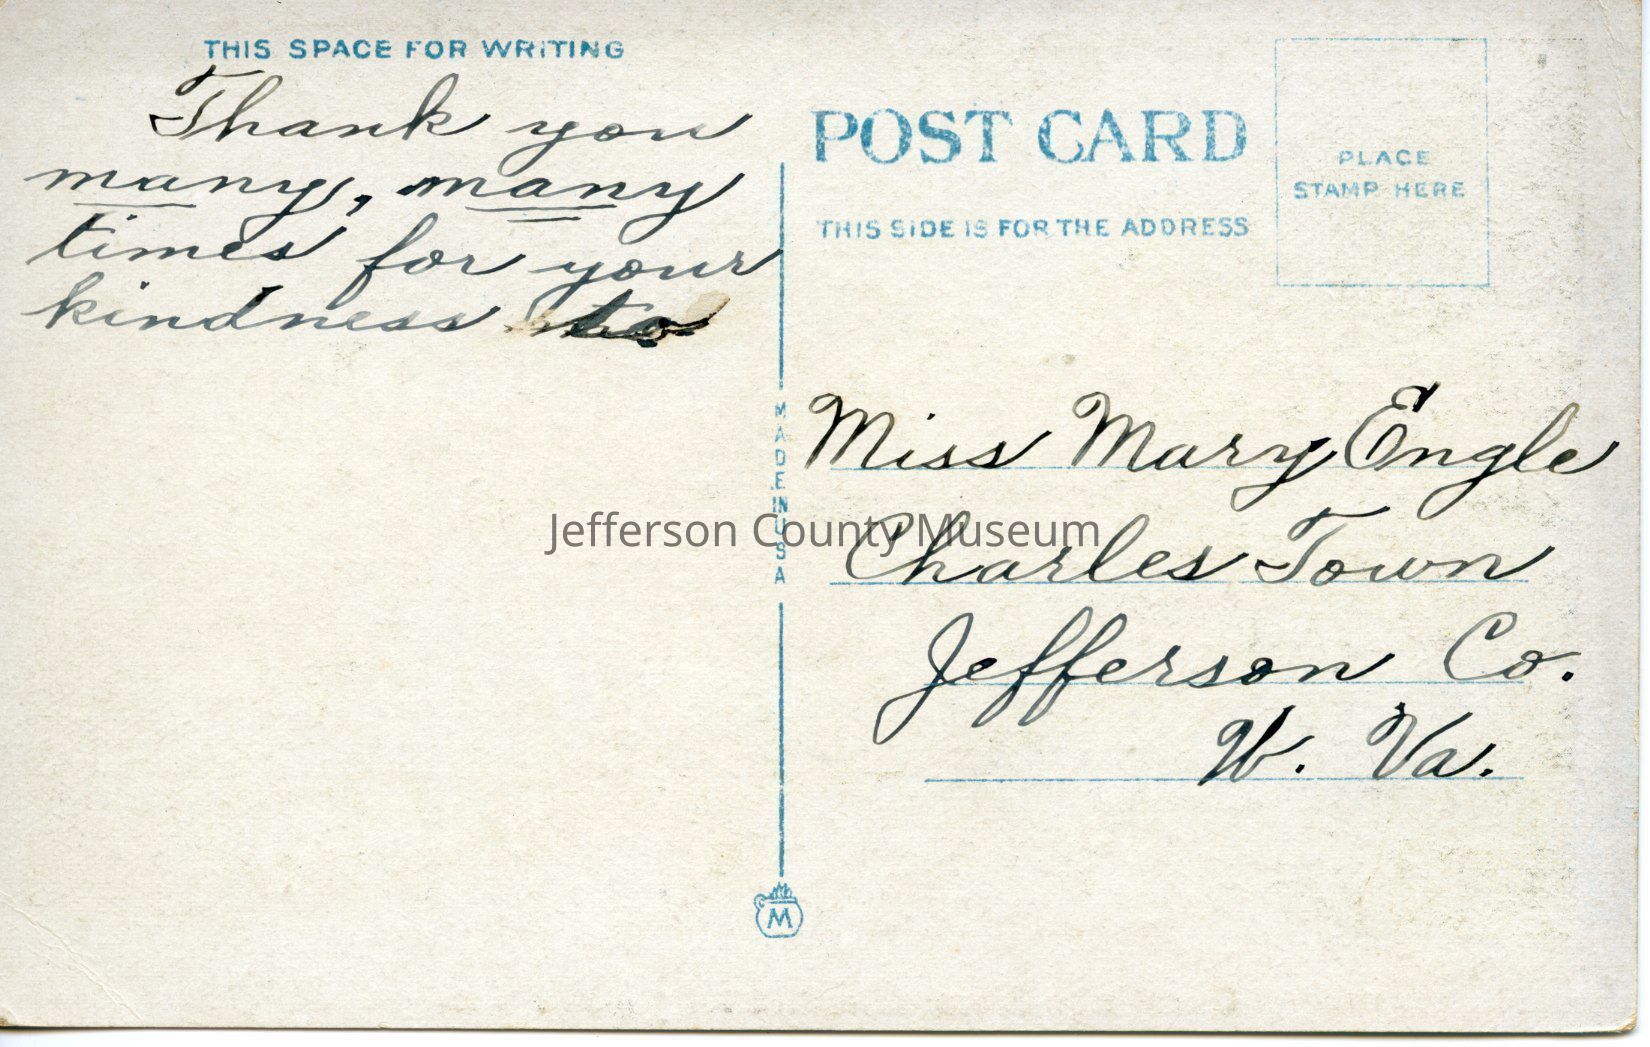 THIS SPACE FOR WRITING
Thank you
many, many
times for your
kindness to
POST CARD
THIS SIDE IS FOR THE ADDRESS
PLACE
STAMP HERE
MADE IN USA
Miss Mary Engle
Charles Town
Jefferson Co.
W. Va.
Jefferson County Museum
M